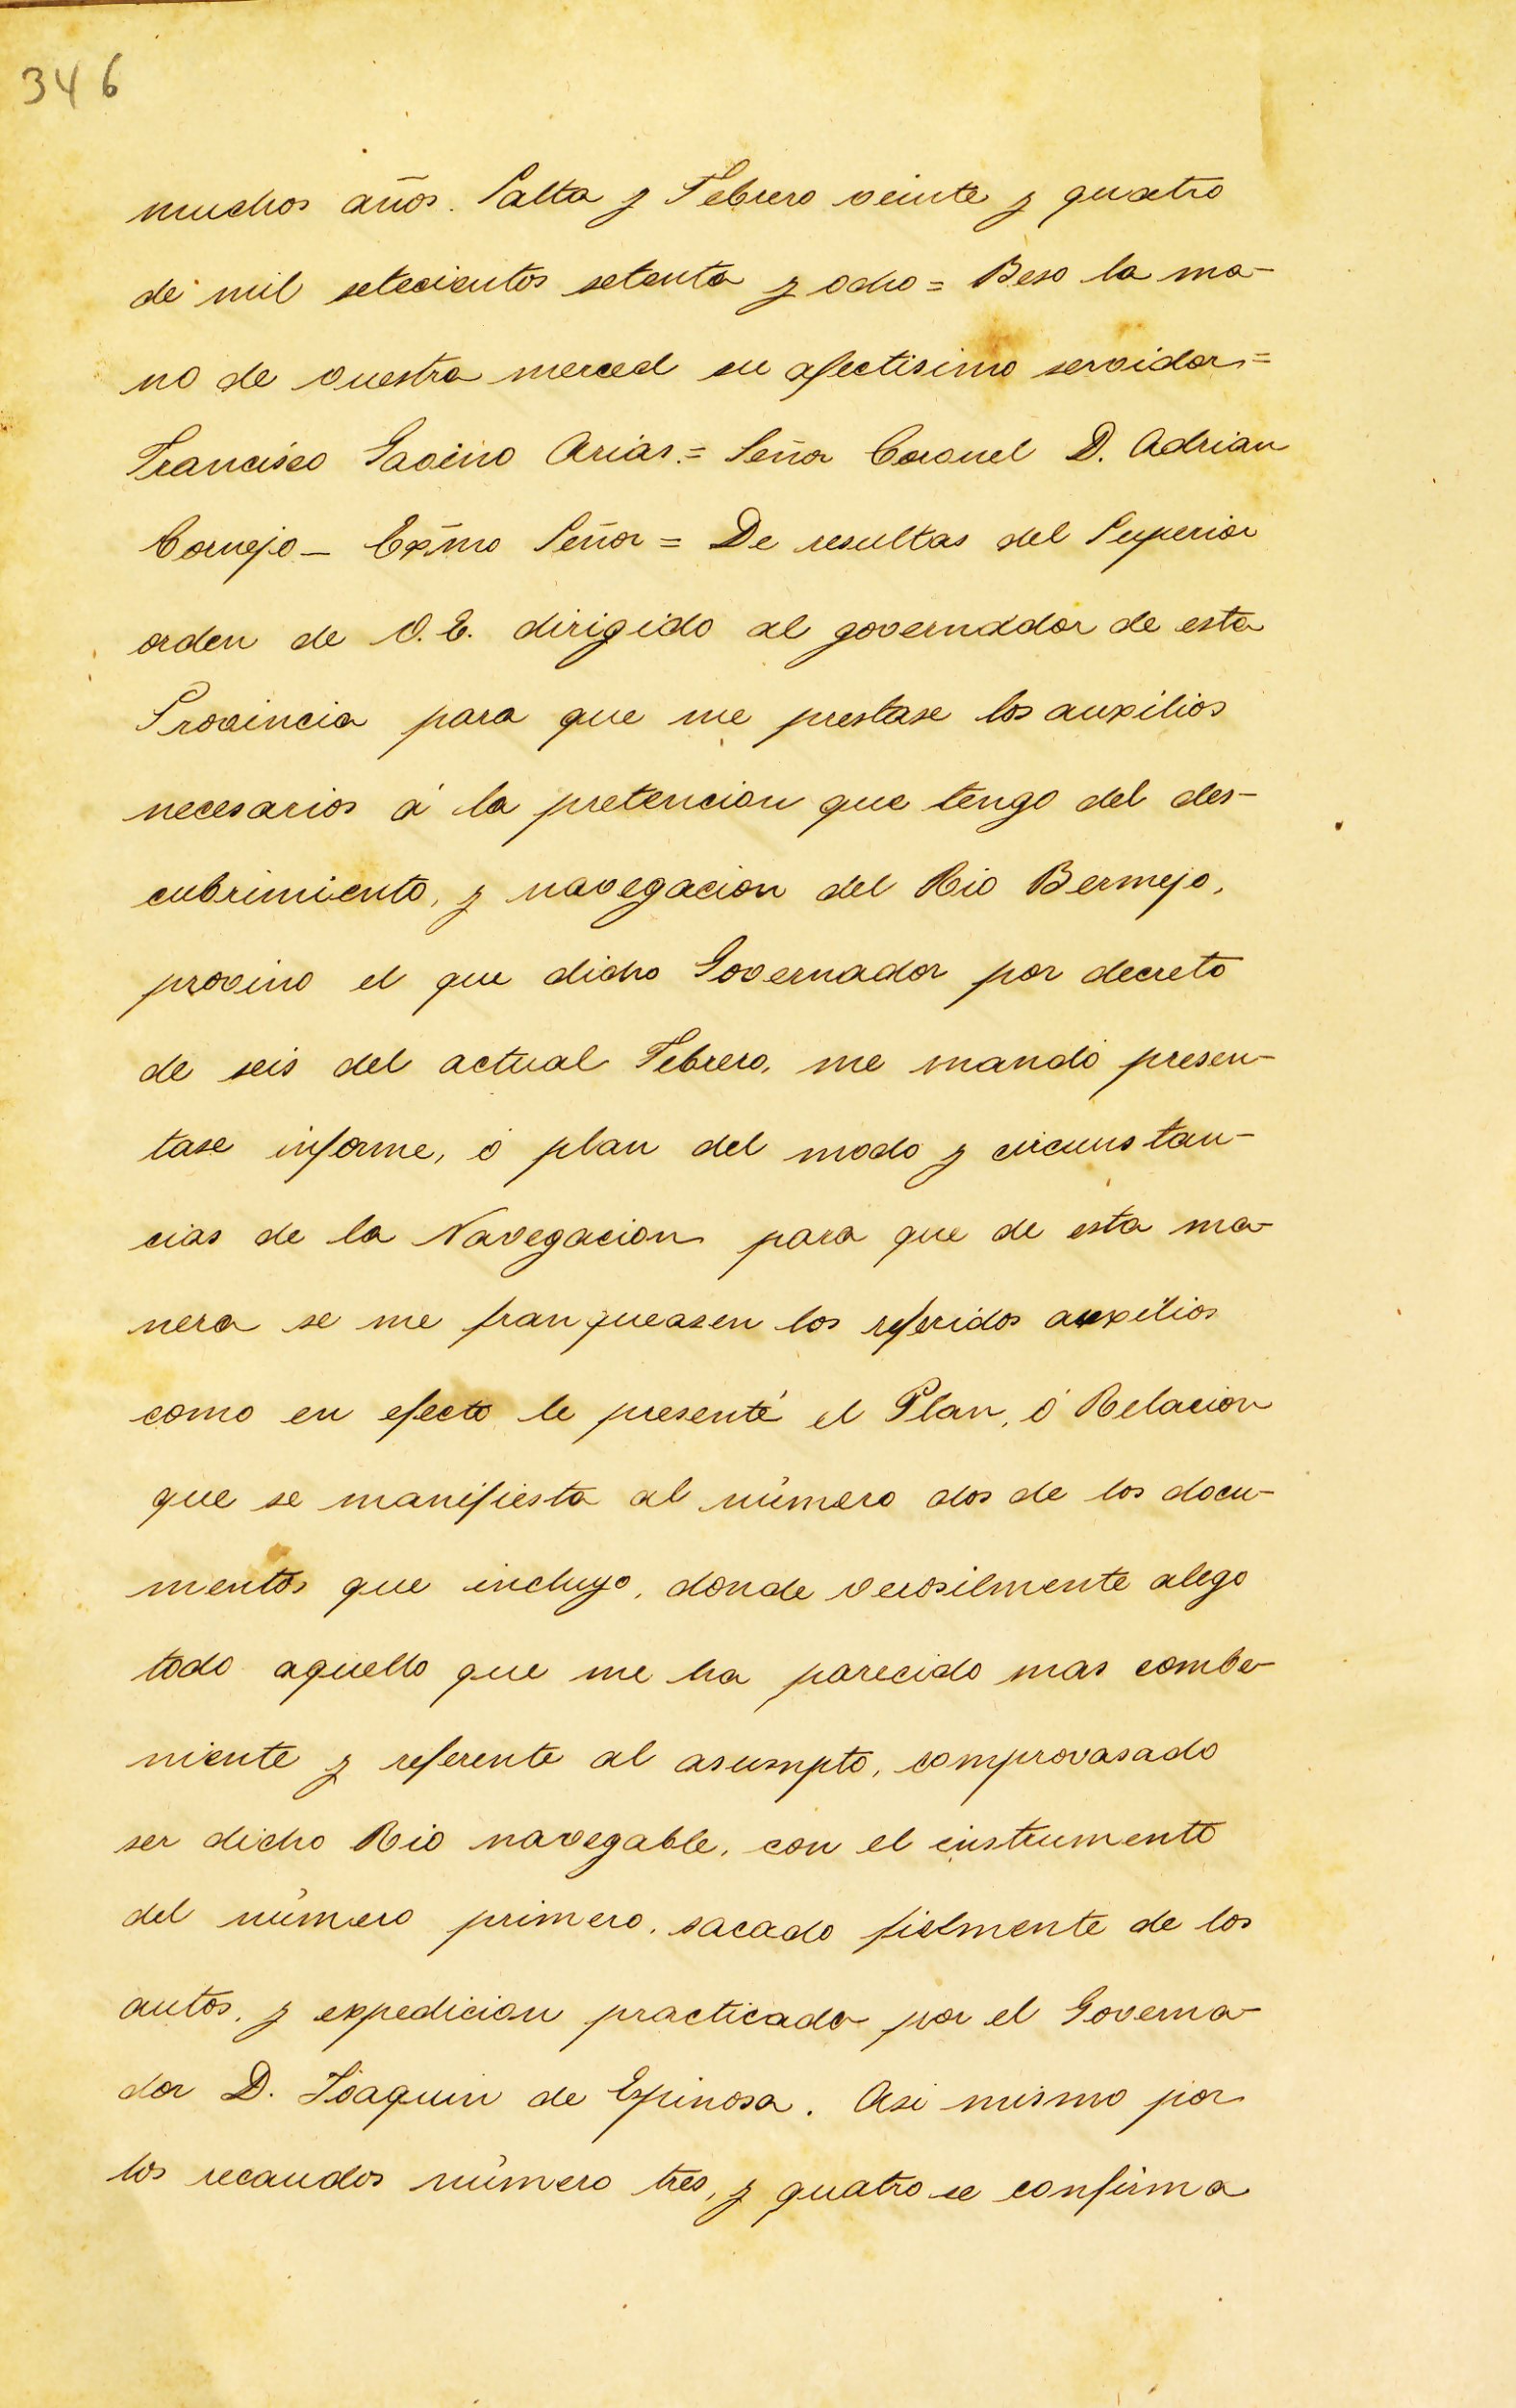 346
muchos años. Salta y Febrero veinte y quatro
de mil setecientos setenta y ocho = Beso la ma-
no de vuestra merced su afectisimo servidor =
Francisco Gavino Arias. = Señor Coronel D. Adrian
Cornejo - Exm̃o Señor = De resultas del Superior
orden de V. E. dirigido al governador de esta
Provincia para que me prestase los auxilios
necesarios á la pretencion que tengo del des-
cubrimiento, y navegacion del Rio Bermejo,
provino el que dicho Governador por decreto
de seis del actual Febrero, me mandó presen-
tase informe, ó plan del modo y circunstan-
cias de la Navegacion para que de esta ma-
nera se me franqueasen los referidos auxilios
como en efecto le presenté el Plan, ó Relacion
que se manifiesta al número dos de los docu-
mentos que incluyo, donde verosilmente alego
todo aquello que me ha parecido mas combe-
niente y referente al asumpto, comprovasado
ser dicho Rio navegable, con el instrumento
del número primero, sacado fielmente de los
autos, y expedicion practicada por el Governa-
dor D. Joaquin de Espinosa. Asi mismo por
los recaudos número tres, y quatro se confirma